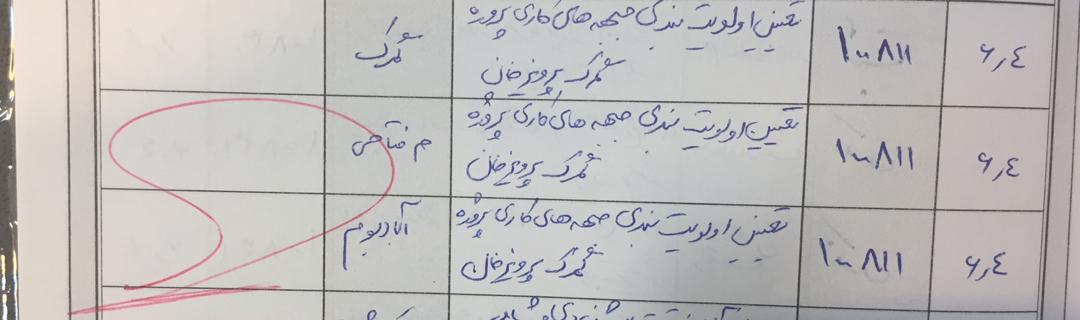 ۶,۴ ۱۰۰۸۱۱ تعیین اولویت بندی جبهه های کاری پروژه
گمرک پرویزخان گمرک
۶,۴ ۱۰۰۸۱۱ تعیین اولویت بندی جبهه های کاری پروژه
گمرک پرویزخان م فتاحی
۶,۴ ۱۰۰۸۱۱ تعیین اولویت بندی جبهه های کاری پروژه
گمرک پرویزخان آبادبوم